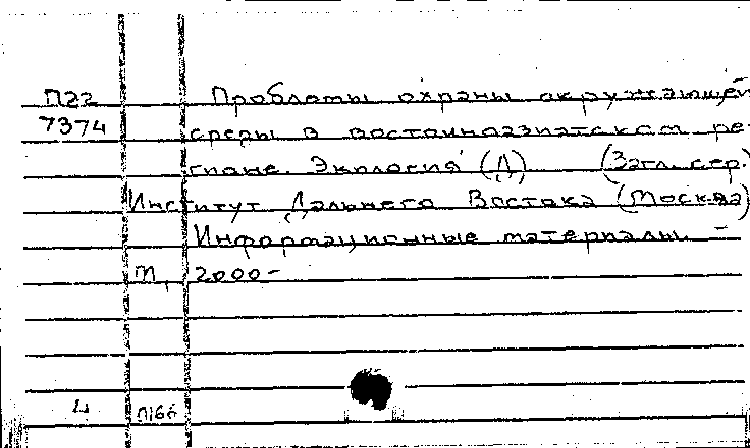 П22 Проблемы охраны окружающей
7374 среды в восточноазиатском ре-
гионе. Экология (Д) (Загл. сер.)
Институт Дальнего Востока (Москва)
Информационные материалы. -
М., 2000-
4 П166